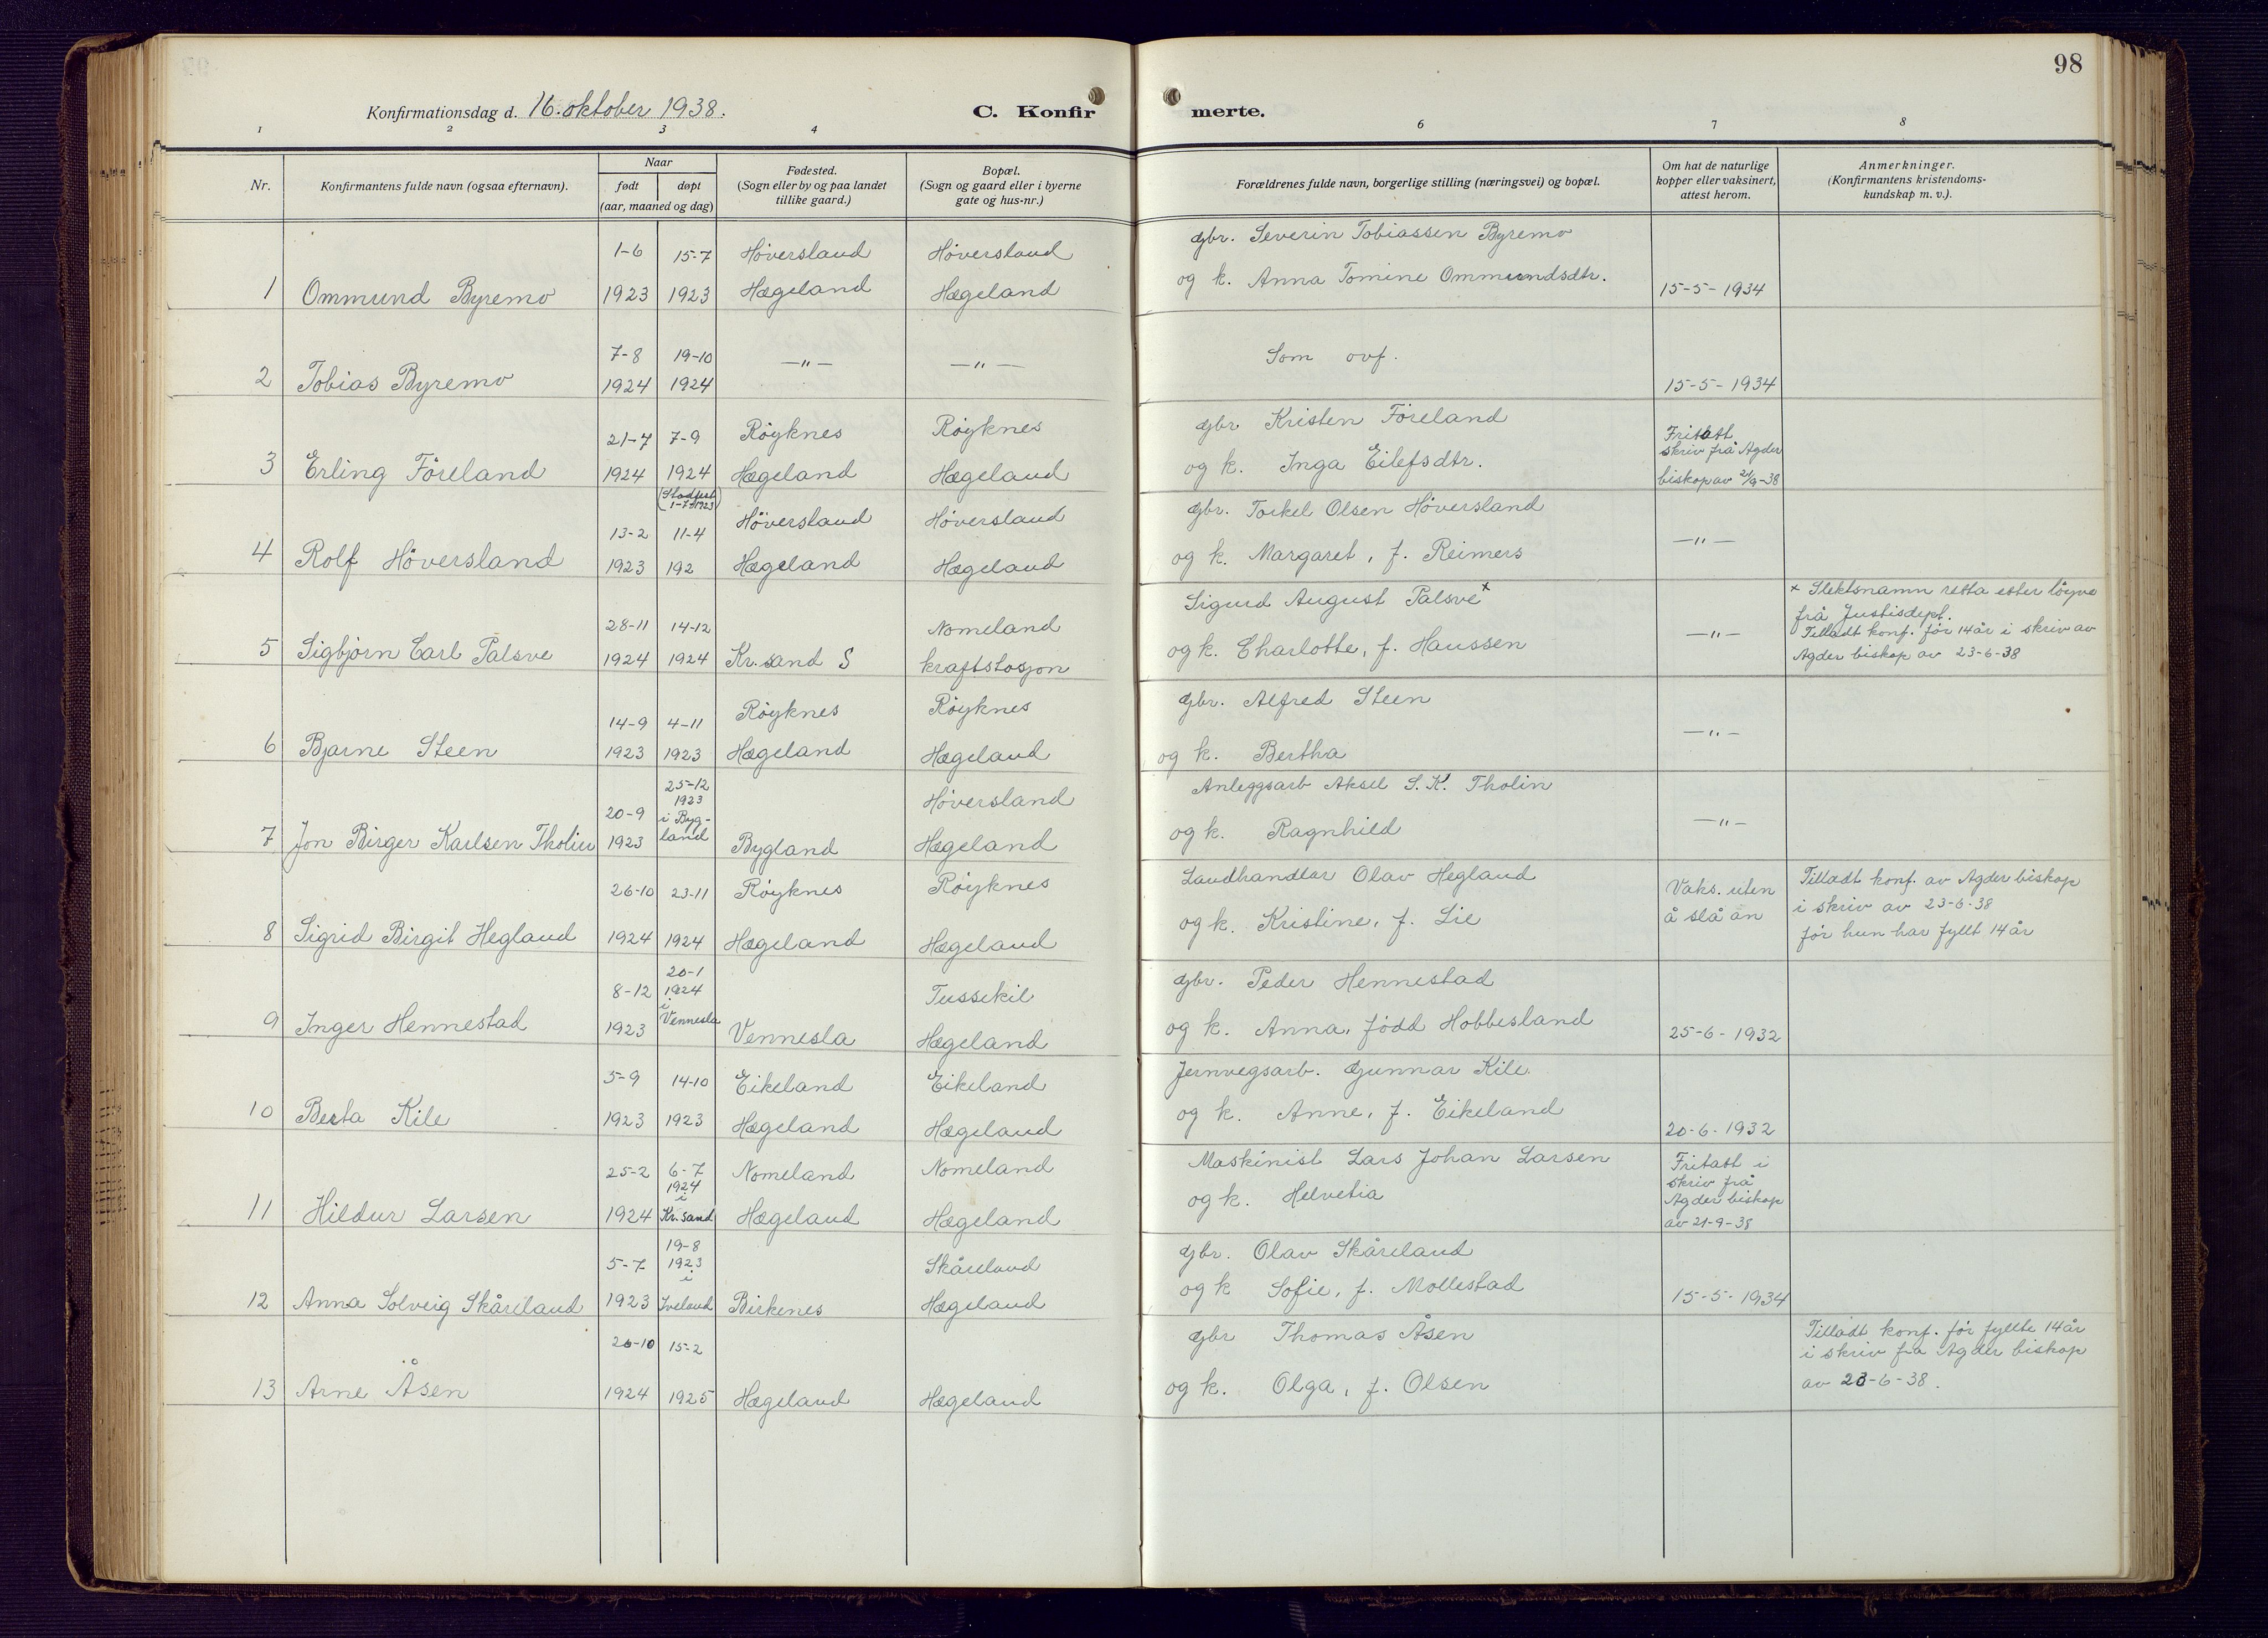 98
Konfirmationsdag d. 16. oktober 1938.
C. Konfirmerte.
1 2 3 4 6 7 8
Nr.
Konfirmantens fulde navn (ogsaa efternavn).
Naar
født
døpt
(aar, maaned og dag)
Fødested.
(Sogn eller by og paa landet
tillike gaard.)
Bopæl.
(Sogn og gaard eller i byerne
gate og hus-nr.)
Forældrenes fulde navn, borgerlige stilling (næringsvei) og bopæl.
Om hat de naturlige
kopper eller vaksinert,
attest herom.
Anmerkninger.
(Konfirmantens kristendoms-
kundskap m. v.).
1-6 15-7 Høversland Høversland gbr. Severin Tobiassen Byremo
1 Ommund Byremo 1923 1923 Hægeland Hægeland og k. Anna Tomine Ommundsdtr. 15-5-1934
7-8 19-10 —"— —"— Som ovf.
2 Tobias Byremo 1924 1924 15-5-1934
21-7 7-9 Røyknes Røyknes gbr Kristen Føreland Fritatt
skriv frå Agder
3 Erling Føreland 1924 1924 Hægeland Hægeland og k. Inga Eilefsdtr. biskop av 21/9-38
(Stadfest
1-7-1923)
13-2 11-4 Høversland Høversland gbr. Torkel Olsen Høversland
4 Rolf Høversland 1923 192 Hægeland Hægeland og k. Margaret, f. Reimers —"—
28-11 14-12 Nomeland Sigurd August Palsve x
5 Sigbjørn Carl Palsve 1924 1924 Kr.sand S kraftstasjon og k. Charlotte, f. Hanssen —"—
x Slektsnamn retta etter løyve
frå Justisdept.
Tilladt konf. før 14 år i skriv av
Agder biskop av 23-6-38
14-9 4-11 Røyknes Røyknes gbr. Alfred Steen
6 Bjarne Steen 1923 1923 Hægeland Hægeland og k. Bertha —"—
20-9 25-12
1923
i Byg-
land Høversland Anleggsarb Aksel S. K. Tholin
7 Jon Birger Karlsen Tholin 1923 Bygland Hægeland og k. Ragnhild —"—
26-10 23-11 Røyknes Røyknes Landhandlar Olav Hegland Vaks. uten
å slå an
8 Sigrid Birgit Hegland 1924 1924 Hægeland Hægeland og k. Kristine, f. Lie
Tilladt konf. av Agder biskop
i skriv av 23-6-38
før hun har fyllt 14 år
8-12 20-1
1924
i
Vennesla Tussekil gbr. Peder Hennestad
9 Inger Hennestad 1923 Vennesla Hægeland og k. Anna, født Hobbesland 25-6-1932
5-9 14-10 Eikeland Eikeland Jernvegsarb. Gunnar Kile
10 Berta Kile 1923 1923 Hægeland Hægeland og k. Anne, f. Eikeland 20-6-1932
25-2 6-7
1924
i
Kr.sand Nomeland Nomeland Maskinist Lars Johan Larsen
11 Hildur Larsen 1924 Hægeland Hægeland og k. Helvetia
Fritatt i
skriv frå
Agder biskop
av 21-9-38
5-7 19-8
1923
i
Iveland Skåreland gbr. Olav Skåreland
12 Anna Solveig Skåreland 1923 Birkenes Hægeland og k Sofie, f. Mollestad 15-5-1934
26-10 15-2 gbr Thomas Åsen
13 Arne Åsen 1924 1925 Hægeland Hægeland og k. Olga, f. Olsen
Tilladt konf. før fyllte 14 år
i skriv fra Agder biskop
av 23-6-38.